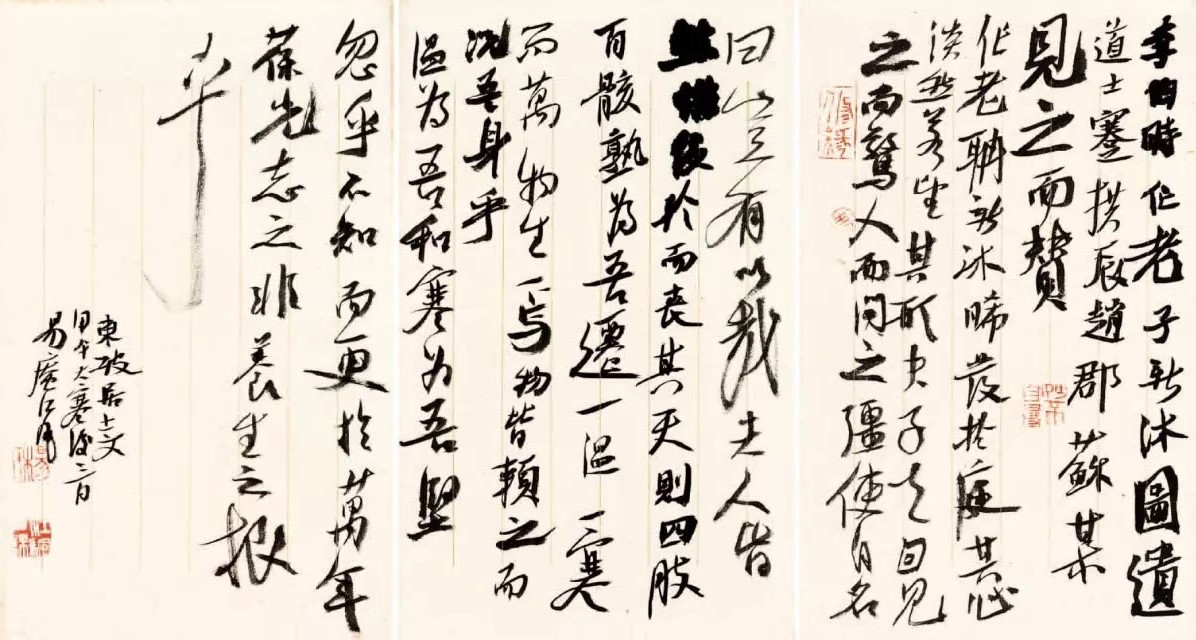 李伯時作老子新沐圖遺
道士蹇拱辰趙郡蘇某
見之而贊
作老聃新沐晞發於庭其心
淡然若其形夫子之回見
之而驚人而問之彊使自名
曰豈有以哉夫人皆
然惟役於而喪其天則四肢
百骸孰為吾遷一溫一寒
而萬物生焉物皆賴之而
況吾身乎
溫為吾和寒為吾堅
忽乎不知而更於萬年
葆光志之非養生之根
乎
東坡居士文
甲午大寒後三日
易廣江